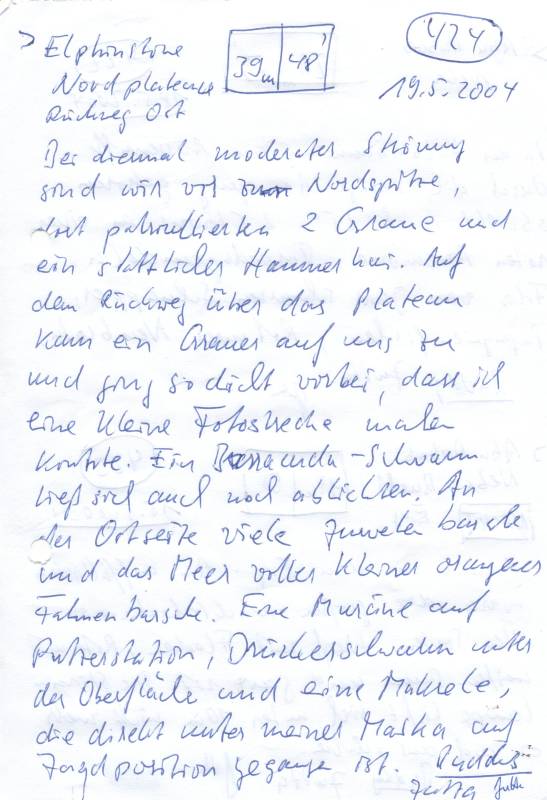 > Elphinstone
39m 48'
424
Nordplateau
19.5.2004
Rückweg Ost
Bei diesmal moderater Strömung
sind wir vor zur Nordspitze,
dort patrouillierten 2 Graue und
ein stattlicher Hammerhai. Auf
dem Rückweg über das Plateau
kam ein Grauer auf uns zu
und ging so dicht vorbei, dass ich
eine kleine Fotostrecke machen
konnte. Ein Barracuda-Schwarm
ließ sich auch noch ablichten. An
der Ostseite viele Juwelenbarsche
und das Meer voller kleiner oranger
Fahnenbarsche. Eine Muräne auf
Putzerstation, Drückerschwarm unter
der Oberfläche und eine Makrele,
die direkt unter meiner Maske auf
Jagdposition gegangen ist.
Jutta